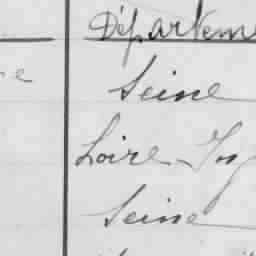 Départem
Seine
Loire Inf
Seine